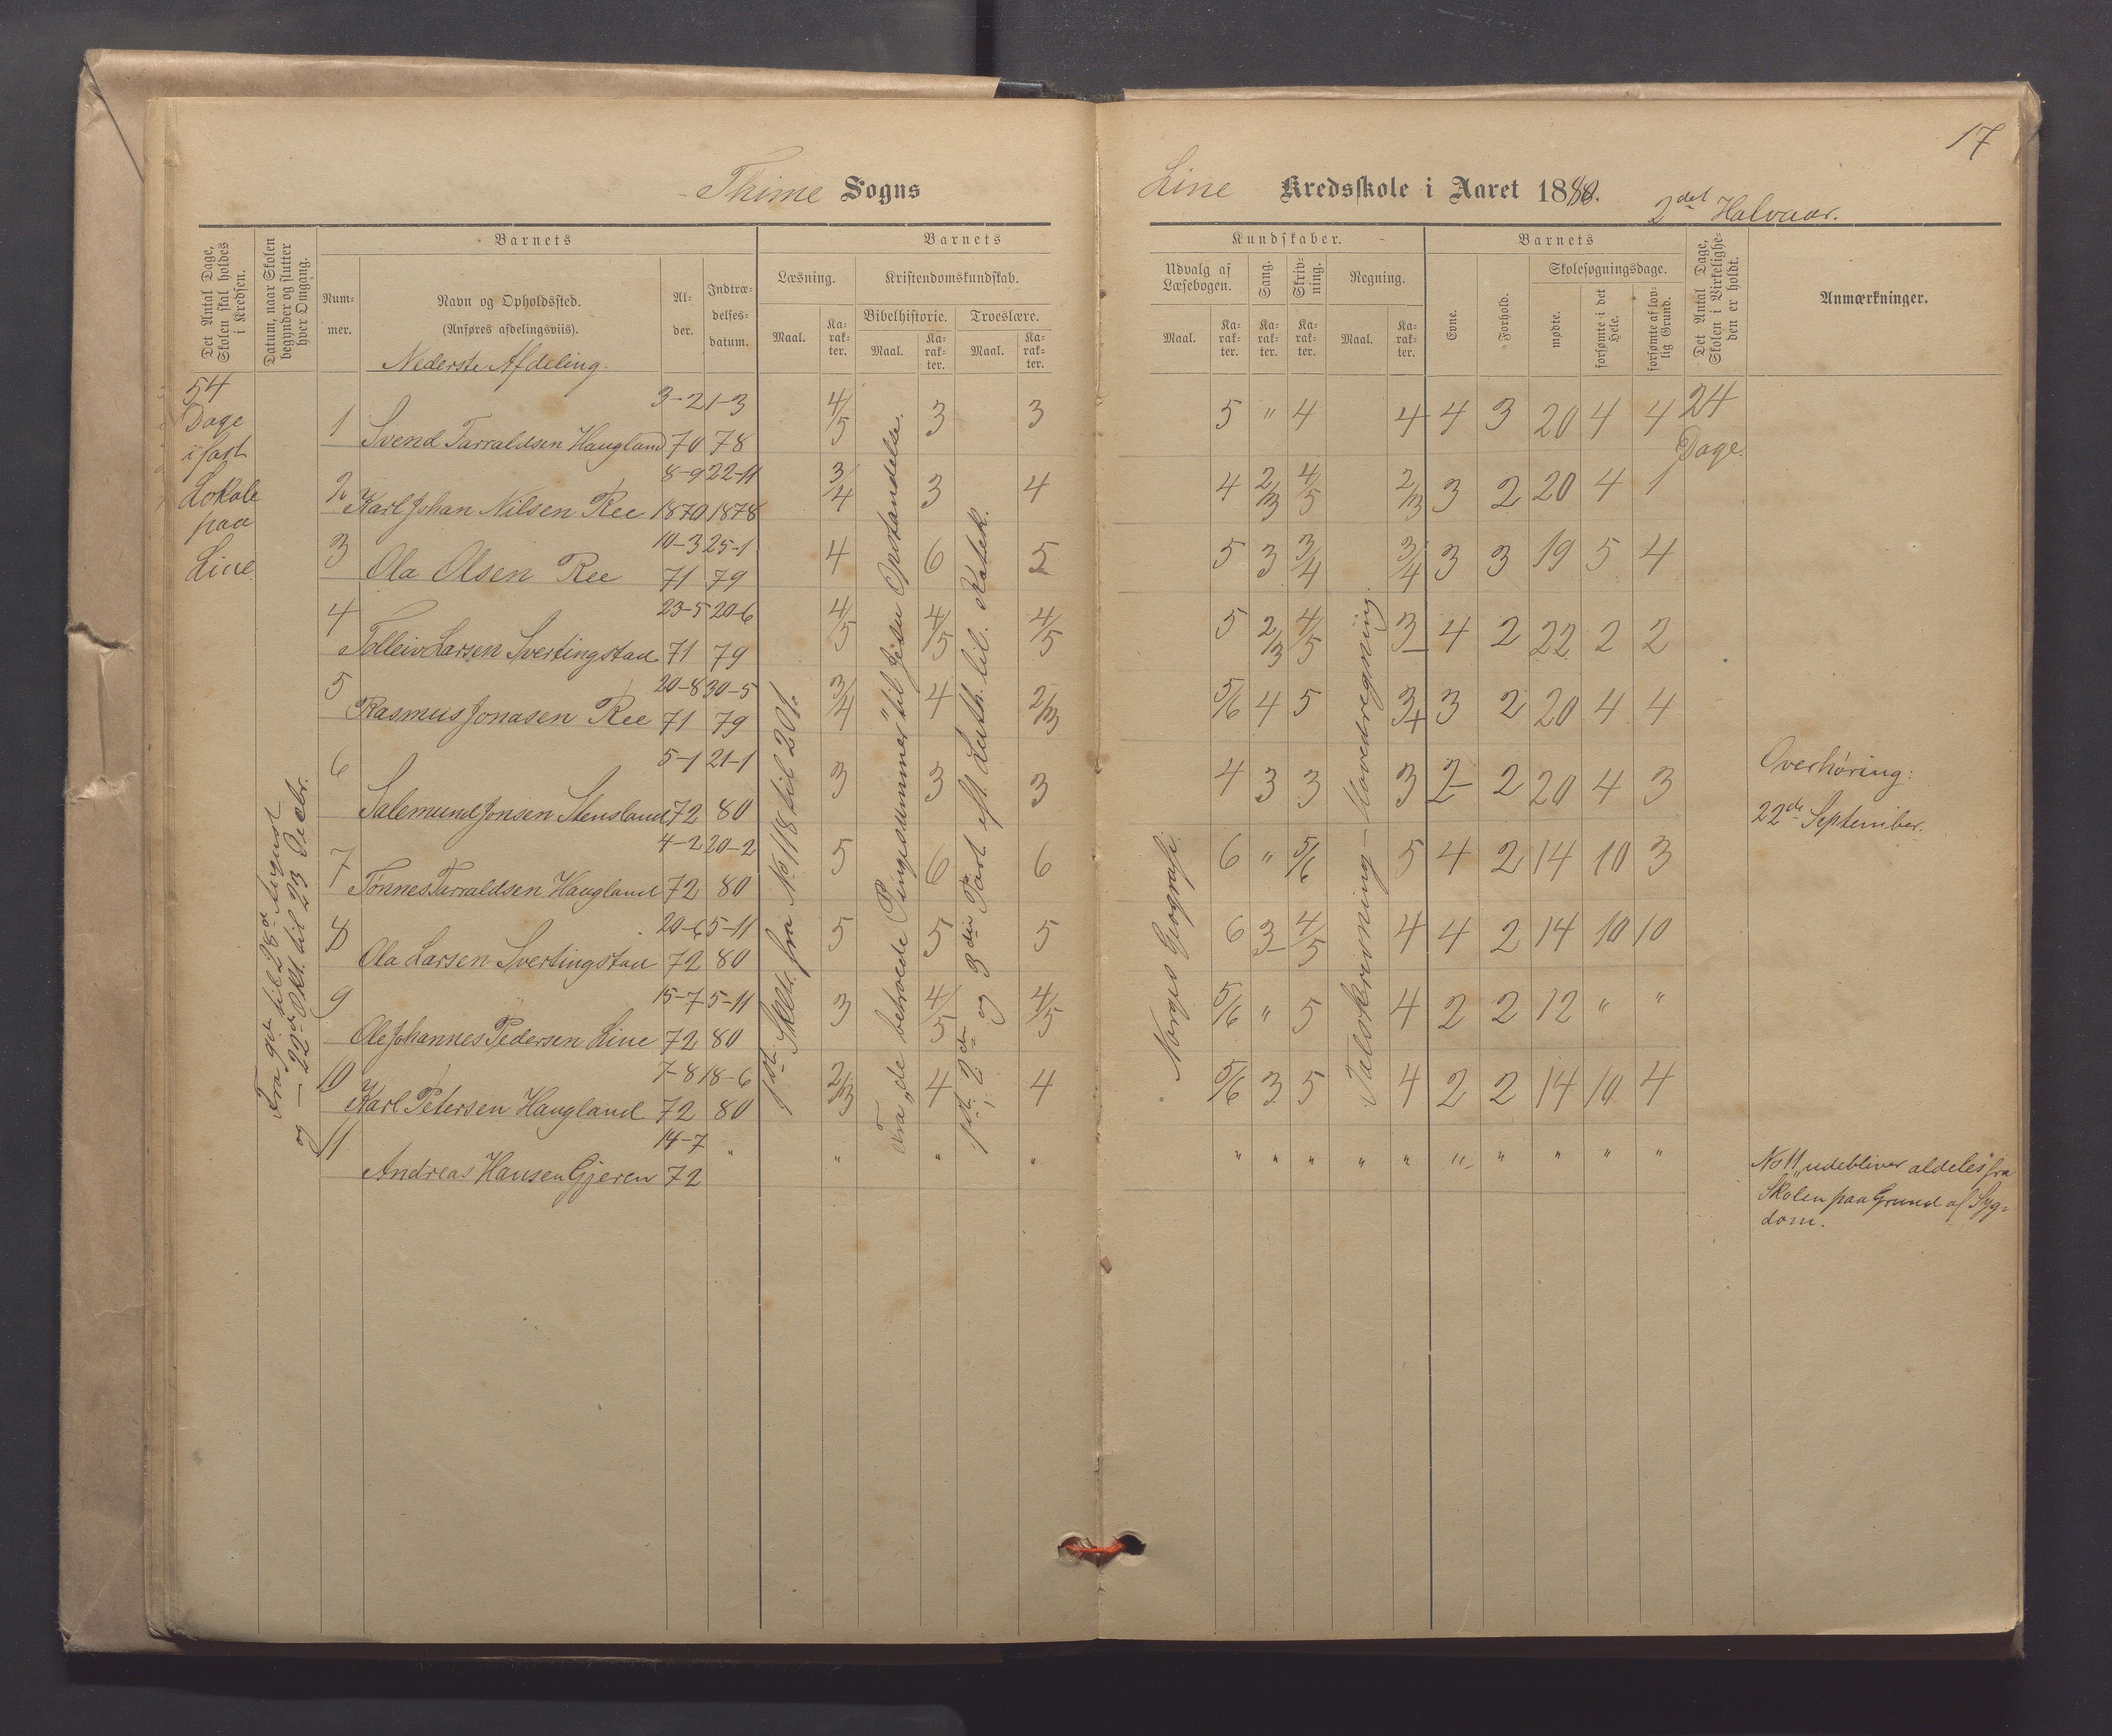 17
Thime Sogns
Line Kredsskole i Aaret 1880. 2det Halvaar.
Det Antal Dage, Skolen skal holdes i Kredsen.
Datum, naar Skolen begynder og slutter hver Omgang.
Barnets
Num-mer.
Navn og Opholdssted.
(Anføres afdelingsviis).
Nederste Afdeling.
Al-der.
Indtræ-delses-datum.
Barnets
Læsning.
Maal.
Ka-rak-ter.
Kristendomskundskab.
Bibelhistorie.
Maal.
Ka-rak-ter.
Troeslære.
Maal.
Ka-rak-ter.
Kundskaber.
Udvalg af Læsebogen.
Maal.
Ka-rak-ter.
Sang.
Ka-rak-ter.
Skriv-ning.
Ka-rak-ter.
Regning.
Maal.
Ka-rak-ter.
Barnets
Evne.
Forhold.
Skolesøgningsdage.
mødte.
forsømte i det Hele.
forsømte af lov-lig Grund.
Det Antal Dage, Skolen i Virkelighe-den er holdt.
Anmærkninger.
54
Dage
i fast
Lokale
paa
Line.
Fra 9de til 28de August
og — 22de Okt. til 23 Decbr.
1 Svend Tarraldsen Haugland 3-2 70 21-3 78 4/5 3 3 5 " 4 4 4 3 20 4 4
2 Karl Johan Nilsen Ree 8-9 1870 22-11 1878 3/4 3 4 4 2/3 4/5 2/3 3 2 20 4 1
3 Ola Olsen Ree 10-3 71 25-1 79 4 6 5 5 3 3/4 3/4 3 3 19 5 4
4 Tolleiv Larsen Svertingstad 23-5 71 20-6 79 4/5 4/5 4/5 5 2/3 4/5 3- 4 2 22 2 2
5 Rasmus Jonasen Ree 20-8 71 30-5 79 3/4 4 2/3 5/6 4 5 3+ 3 2 20 4 4
6 Salemund Jonsen Stensland 5-1 72 21-1 80 3 3 3 4 3 3 3 2- 2 20 4 3
7 Tønnes Tarraldsen Haugland 4-2 72 20-2 80 5 6 6 6 " 5/6 5 4 2 14 10 3
8 Ola Larsen Svertingstad 20-6 72 5-11 80 5 5 5 6 3- 4/5 4 4 2 14 10 10
9 Ole Johannes Pedersen Line 15-7 72 5-11 80 3 4/5 4/5 5/6 " 5 4 2 2 12 " "
10 Karl Petersen Haugland 7-8 72 18-6 80 2/3 4 4 5/6 3 5 4 2 2 14 10 4
11 Andreas Hansen Gjeren 14-7 72 " " " " " " " " " " " " " "
1ste Skltr. fra No 118 til 201.
Fra „de betroede Pungesummer" til Jesu Opstandelse.
1ste, 2den og 3die Part eft. Luth. lil. Katek.
Norges Geografi.
Talskrivning — Hovedregning.
24
Dage.
Overhøring:
22de September.
No 11 udebliver aldeles fra
Skolen paa Grund af Syg-
dom.